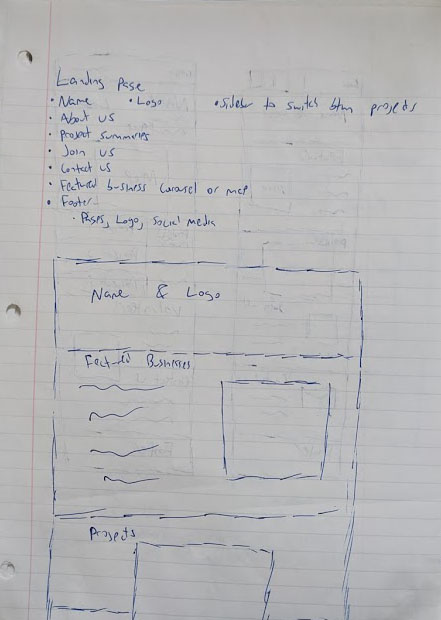 Landing Page
• Name • Logo • Sidebar to switch btwn projects
• About us
• Project summaries
• Join us
• Contact us
• Featured business carousel or map
• Footer
• Pages, Logo, Social media
Name & Logo
Featured Businesses
Projects